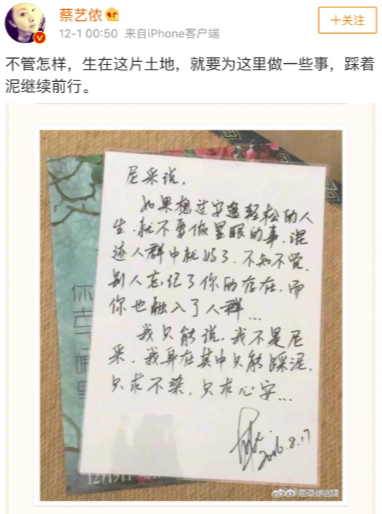 蔡艺侬
12-1 00:50 来自iPhone客户端
+关注
不管怎样，生在这片土地，就要为这里做一些事，踩着
泥继续前行。
尼采说，
如果想过安逸轻松的人
生，就不要做显眼的事，混
迹人群中就好了，不知不觉，
别人忘记了你的存在，而
你也融入了人群...
我只能说，我不是尼
采，我身在其中只能踩泥，
只求不染，只求心安...
2016.8.17